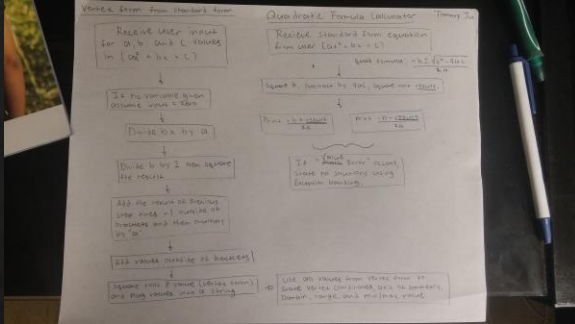 Vertex form from standard form
Receive user input
for a, b, and c values
in (ax² + bx + c)
If no variable given
assume input = zero
Divide bx by a
Divide b by 2 then square
the result
Add the result of previous
step times -1 outside of
brackets and then multiply
by "a"
Add values outside of brackets
Square root value (vertex form)
and plug values into a string
Quadratic Formula Calculator
Recieve standard form equation
from user (ax² + bx + c)
Square b, subtract by 4ac, square root result.
Print -b + result
2a
Print -b - result
2a
If Error" occurs
using
Exception handling.
Use all values from vertex form to
state vertex coordinates, axis of symmetry,
Domain, range, and min/max value